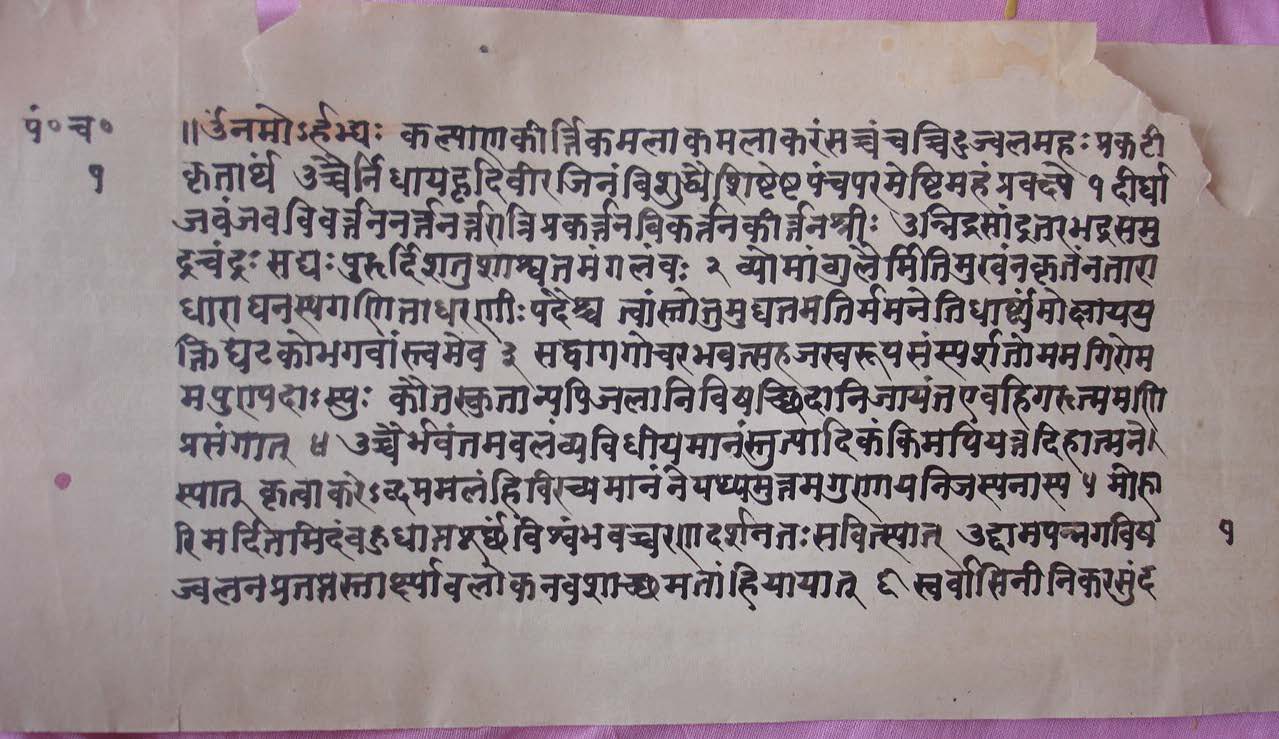 पं॰ च॰
१
॥ र्उंनमोऽर्हभ्द्यः कल्पाणकीर्त्तिकमलाकमलाकरंसच्चंचच्चिदुज्वलमहःप्रकटी
कृतार्थं उच्चैर्निधायहृदिवीरजिनंविशुद्ध्यैशिष्टेष्टपंचपरमेष्टिमहंप्रवक्ष्ये १ दीर्घा
जवंजवविवर्त्तननर्त्तनर्त्तरात्रिप्रकर्त्तनविकर्तनकीर्त्तनश्रीः उन्निद्रसांद्रतरभद्रसमु
द्रचंद्रः सद्यःपुरुर्दिशतुशाश्वतमंगलंवः २ व्योमांगुलैर्मितिमुखंनकृतंनतारा
धाराघनस्यगणिताधरणीःपदैश्च त्वांस्तोतुमुद्यतमतिर्ममनेतिधार्ष्ट्यंमोक्षाययु
क्तिघटकोभगवांस्त्वमेव ३ सद्वागगोचरभवत्सहजस्वरूपसंस्पर्शतोममगिरोम
मपुणपदाःस्युः कौतस्कुतान्यपिजलानिविषच्छिदानिजायंतएवहिगरुत्ममणि
प्रसंगात् ४ उच्चैर्भवंतमवलंव्यविधीयमानंस्तुत्यादिकंकिमपियत्नदिहात्मने।
स्पात् कृत्वाकरेऽव्दममलंहिविरच्यमानंनेपथ्यमुत्तमगुणायनिजस्यनास्य ५ मोहा
रिमर्दितमिदंवहुधा विश्वंभवच्चरणदर्शनतःसवित्स्यात् उद्दामपन्नगविष
१
ज्वलनप्रतप्तस्तार्क्ष्यावलोकनवशाच्छमतांहियायात् ६ स्वर्वासिनीनिकरसुंद